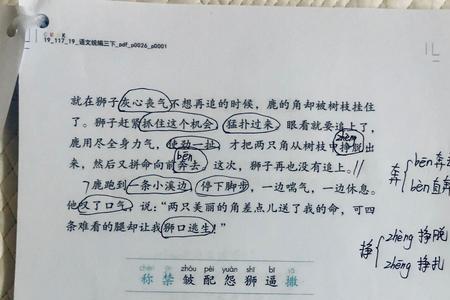 19_117_19_语文统编三下_pdf_p0026_p0001
就在狮子灰心丧气不想再追的时候，鹿的角却被树枝挂住
了。狮子赶紧抓住这个机会，猛扑过来。眼看就要追上了，
zhèng
鹿用尽全身力气，使劲一扯，才把两只角从树枝中挣脱出
bēn
来，然后又拼命向前奔去。这次，狮子再也没有追上。
7鹿跑到一条小溪边，停下脚步，一边喘气，一边休息。
他叹了口气，说：“两只美丽的角差点儿送了我的命，可四
条难看的腿却让我狮口逃生！”
奔
bēn
bèn
挣
zhèng 挣脱
zhēng 挣扎
chèn jīn zhòu pèi yuàn shī bī sā
称 禁 皱 配 怨 狮 逼 撒